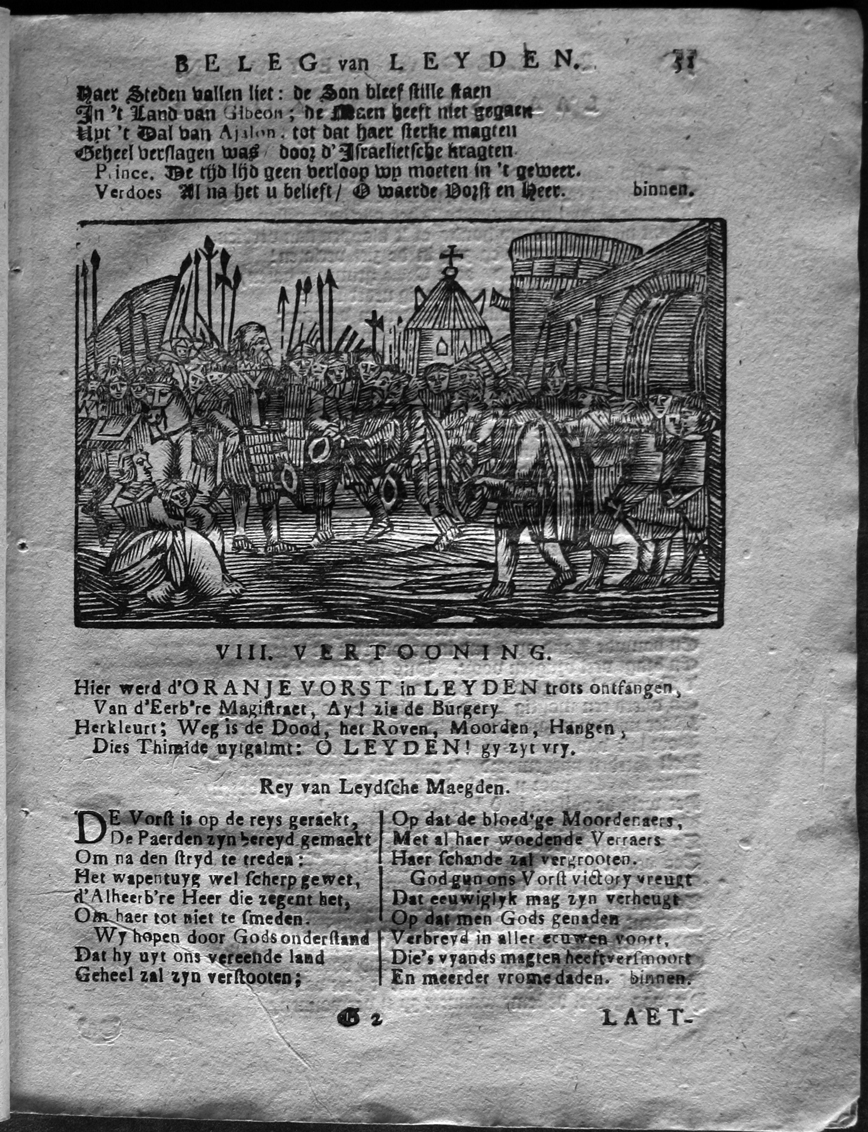 BELEG van LEYDEN. 51
Haer Steden vallen liet: de Son bleef stille staen
In 't Land van Gibeon; de Maen heeft niet gegaen
Uyt 't Dal van Ajalon, tot dat haer sterke magten
Geheel verslagen was / door d'Israelietsche kragten.
Prince. De tijd lijd geen verloop wy moeten in 't geweer.
Verdoes Al na het u belieft / O waerde Vorst en Heer. binnen.
VIII. VERTOONING.
Hier werd d'ORANJE VORST in LEYDEN trots ontfangen,
Van d'Eerb're Magistraet, Ay! zie de Burgery
Herkleurt; Weg is de Dood, het Roven, Moorden, Hangen,
Dies Thimide uytgalmt: O LEYDEN! gy zyt vry.
Rey van Leydsche Maegden.
DE Vorst is op de reys geraekt,
De Paerden zyn bereyd gemaekt
Om na den stryd te treden:
Het wapentuyg wel scherp gewet,
d'Alheerb're Heer die zegent het,
Om haer tot niet te smeden.
Wy hopen door Gods onderstand
Dat hy uyt ons vereende land
Geheel zal zyn verstooten;
Op dat de bloed'ge Moordenaers,
Met al haer woedende Verraers
Haer schande zal vergrooten.
God gun ons Vorst victory vreugt
Dat eeuwiglyk mag zyn verheugt
Op dat men Gods genaden
Verbreyd in aller eeuwen voort,
Die's vyands magten heeft versmoort
En meerder vrome daden. binnen.
G 2 LAET-